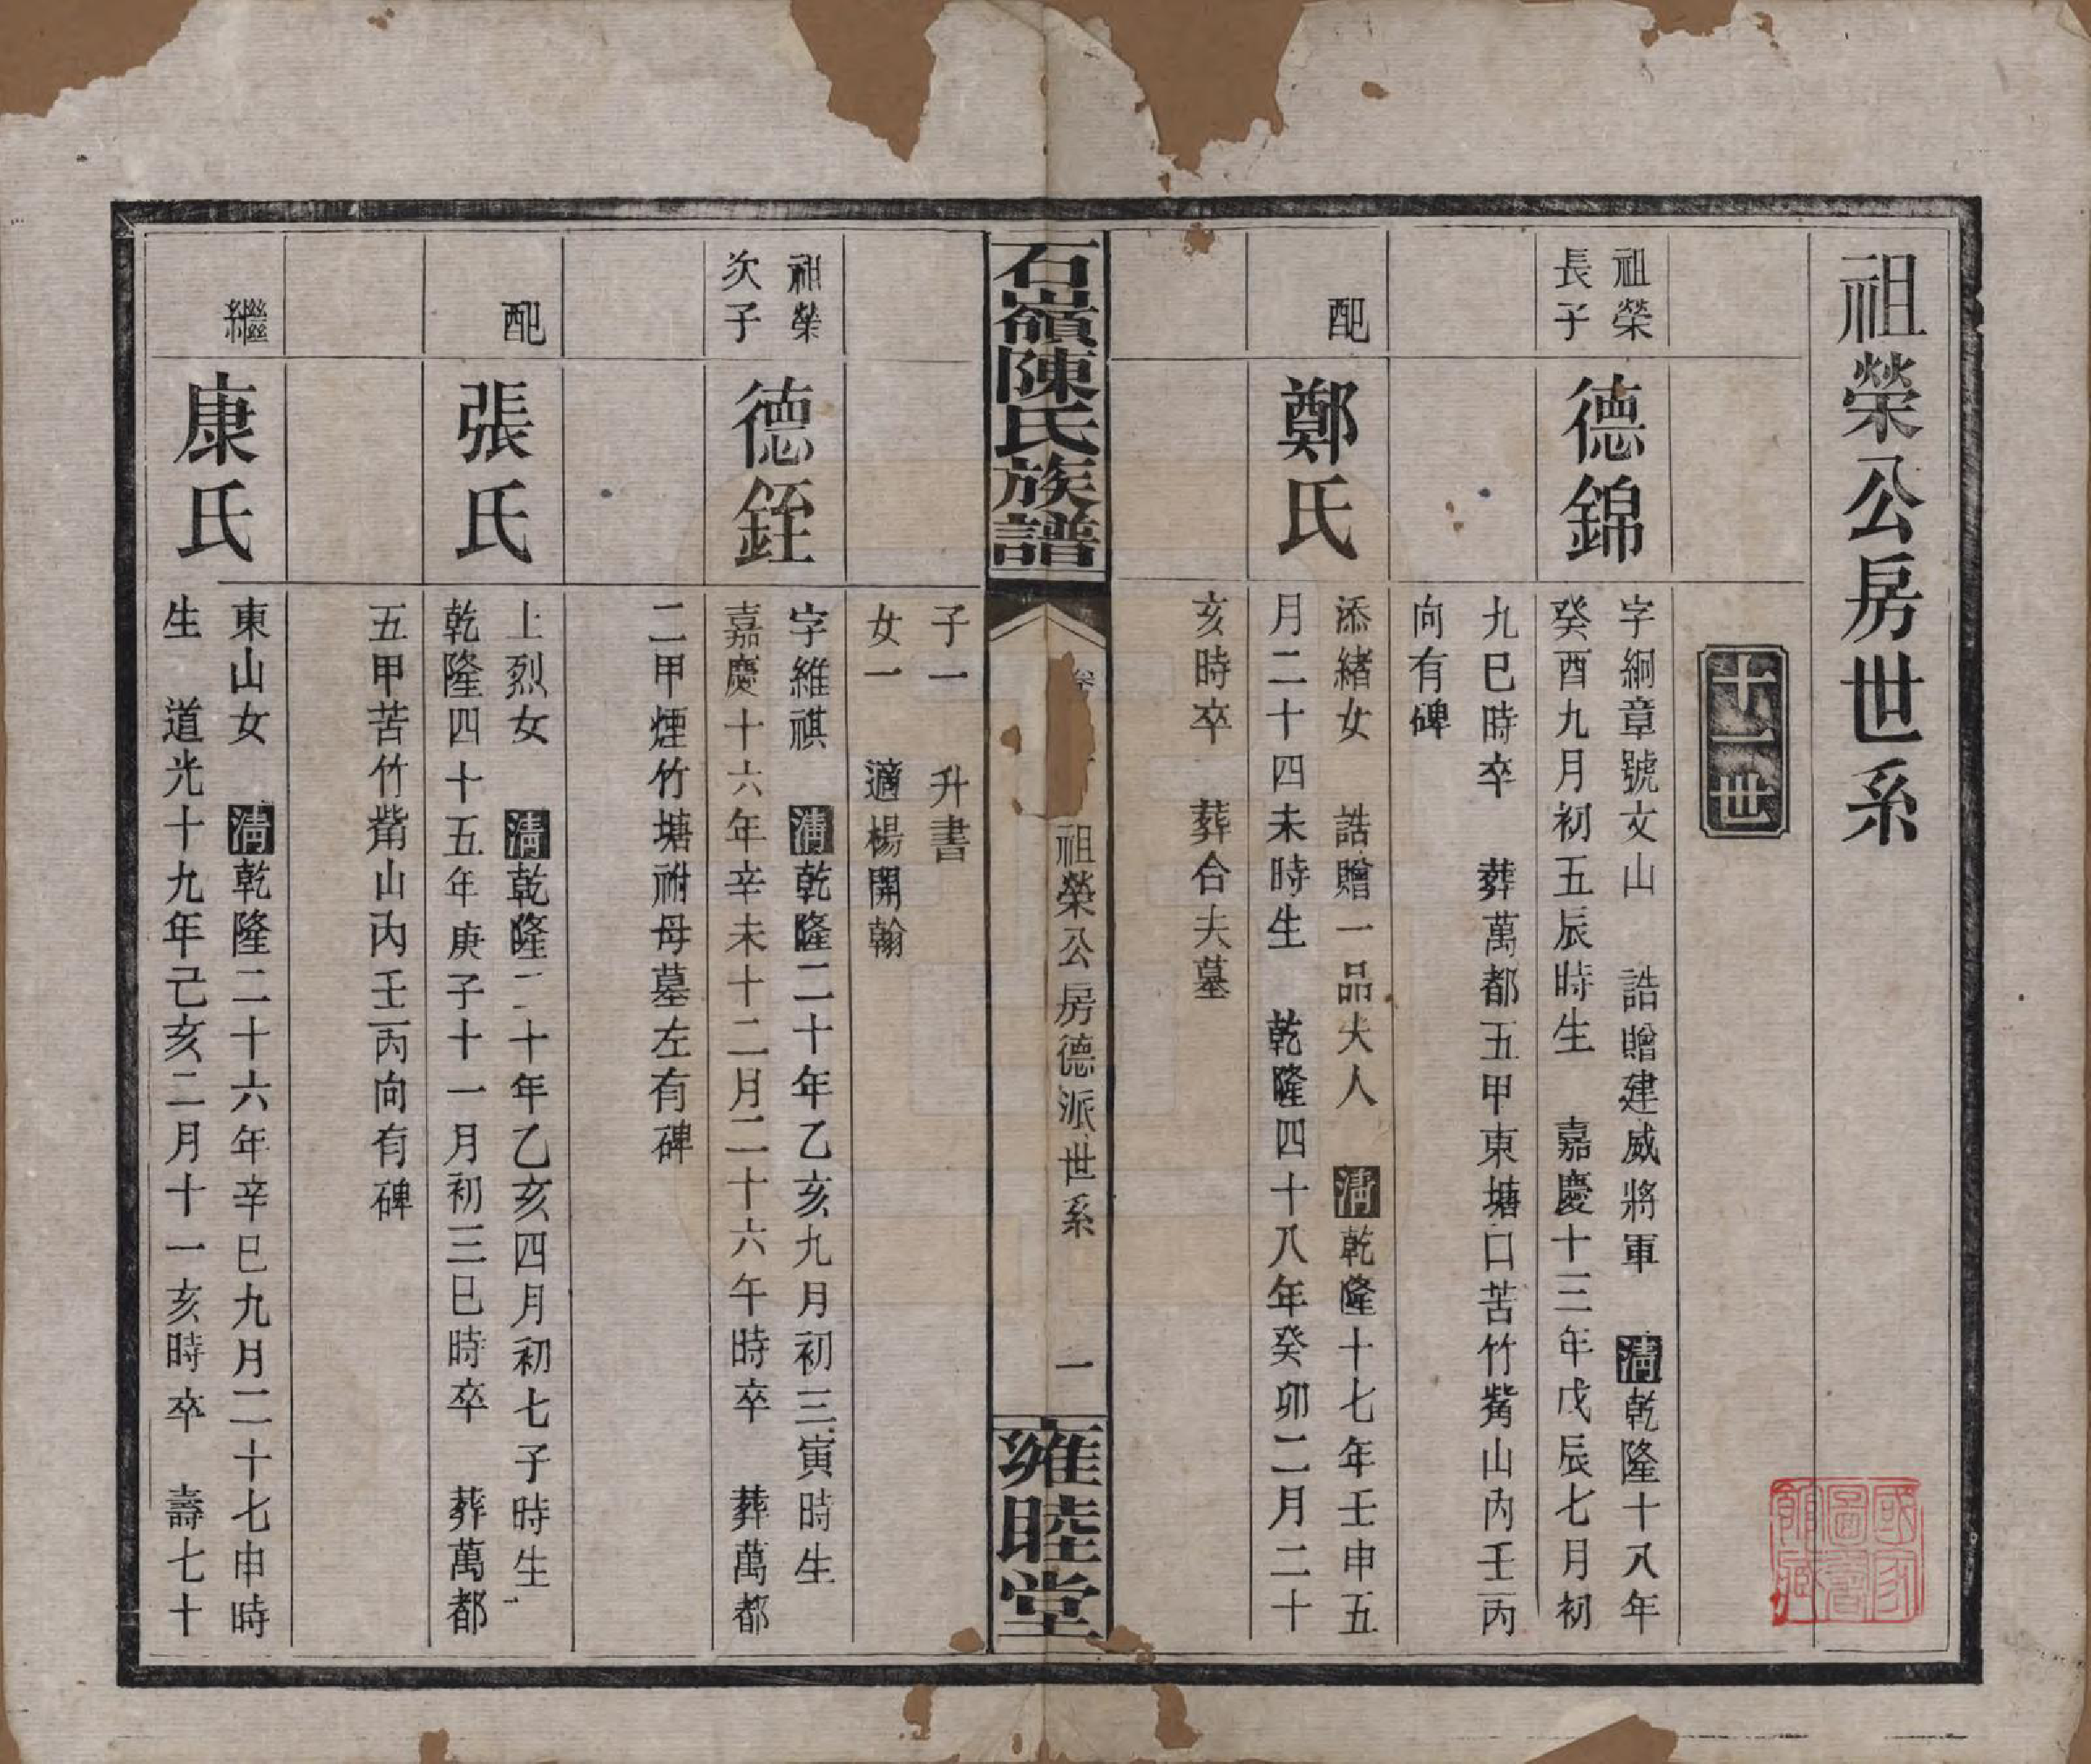 祖榮公房世系
十一世
祖榮
長子
德錦
字絅章號文山　誥贈建威將軍　清乾隆十八年
癸酉九月初五辰時生　嘉慶十三年戊辰七月初
九巳時卒　葬萬都五甲東塘口苦竹觜山內壬丙
向有碑
配
鄭氏
添緒女　誥贈一品夫人　清乾隆十七年壬申五
月二十四未時生　乾隆四十八年癸卯二月二十
亥時卒　葬合夫墓
石嶺陳氏族譜
卷
祖榮公房德派世系
一
雍睦堂
子一　升書
女一　適楊開翰
祖榮
次子
德銍
字維祺　清乾隆二十年乙亥九月初三寅時生
嘉慶十六年辛未十二月二十六午時卒　葬萬都
二甲煙竹塘祔母墓左有碑
配
張氏
上烈女　清乾隆二十年乙亥四月初七子時生
乾隆四十五年庚子十一月初三巳時卒　葬萬都
五甲苦竹觜山內壬丙向有碑
繼
康氏
東山女　清乾隆二十六年辛巳九月二十七申時
生　道光十九年己亥二月十一亥時卒　壽七十
國家圖書館藏